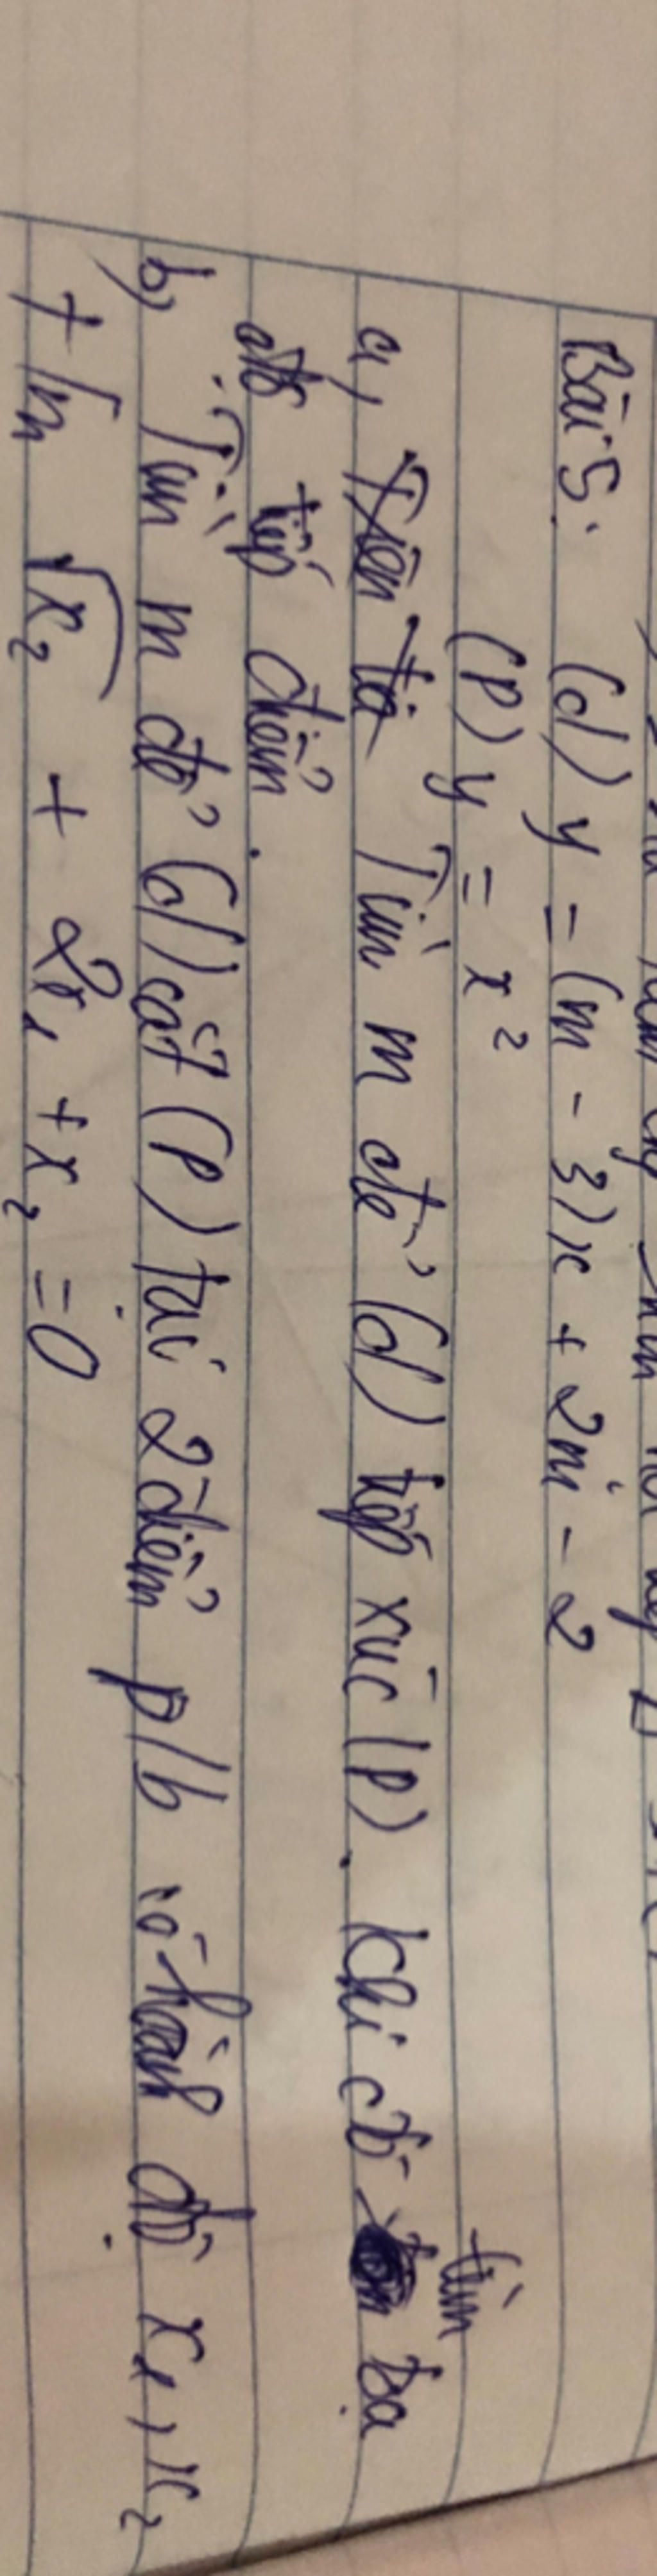 Bài 5: (d) y = (m - 3)x + 2m - 2
(P) y = x²
tìm
a, Tìm m để (d) tiếp xúc (P). Khi đó tọa
độ tiếp điểm.
b, Tìm m để (d) cắt (P) tại 2 điểm p/b có hoành độ x₁, x₂
t/m √x₂ + 2x₁ + x₂ = 0